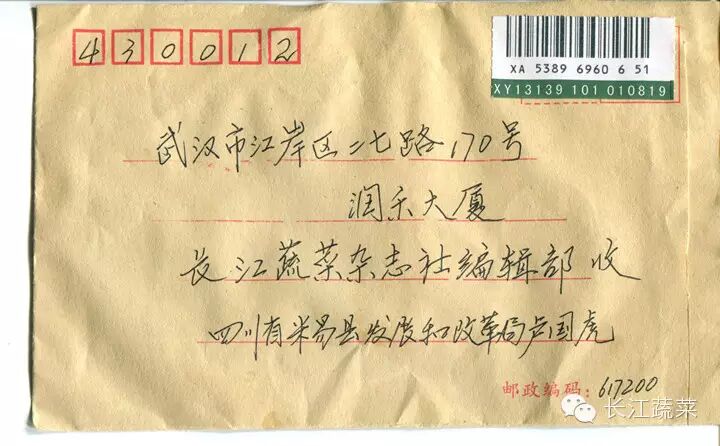 430012
XA 5389 6960 6 51
XY13139 101 010819
武汉市江岸区二七路170号
润禾大厦
长江蔬菜杂志社编辑部 收
四川省米易县发展和改革局卢国虎
邮政编码：617200
长江蔬菜